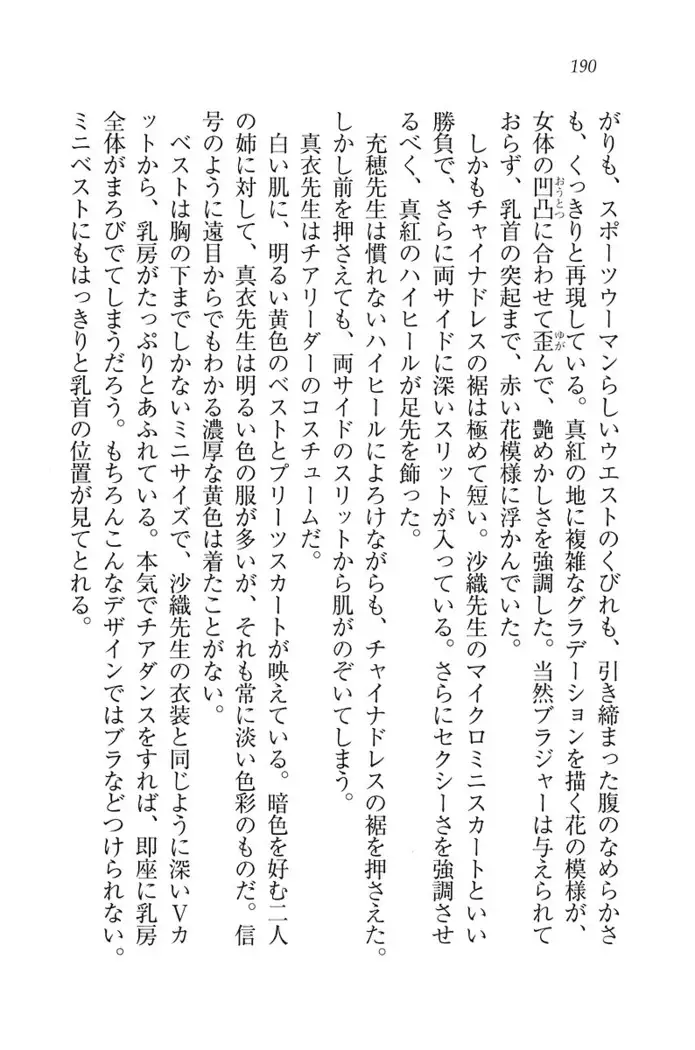 190
がりも、スポーツウーマンらしいウエストのくびれも、引き締まった腹のなめらかさ
も、くっきりと再現している。真紅の地に複雑なグラデーションを描く花の模様が、
女体の凹凸に合わせて歪んで、艶めかしさを強調した。当然ブラジャーは与えられて
おうとつ
ゆが
おらず、乳首の突起まで、赤い花模様に浮かんでいた。
しかもチャイナドレスの裾は極めて短い。沙織先生のマイクロミニスカートといい
勝負で、さらに両サイドに深いスリットが入っている。さらにセクシーさを強調させ
るべく、真紅のハイヒールが足先を飾った。
充穂先生は慣れないハイヒールによろけながらも、チャイナドレスの裾を押さえた。
しかし前を押さえても、両サイドのスリットから肌がのぞいてしまう。
真衣先生はチアリーダーのコスチュームだ。
白い肌に、明るい黄色のベストとプリーツスカートが映えている。暗色を好む二人
の姉に対して、真衣先生は明るい色の服が多いが、それも常に淡い色彩のものだ。信
号のように遠目からでもわかる濃厚な黄色は着たことがない。
ベストは胸の下までしかないミニサイズで、沙織先生の衣装と同じように深いVカ
ットから、乳房がたっぷりとあふれている。本気でチアダンスをすれば、即座に乳房
全体がまろびでてしまうだろう。もちろんこんなデザインではブラなどつけられない。
ミニベストにもはっきりと乳首の位置が見てとれる。